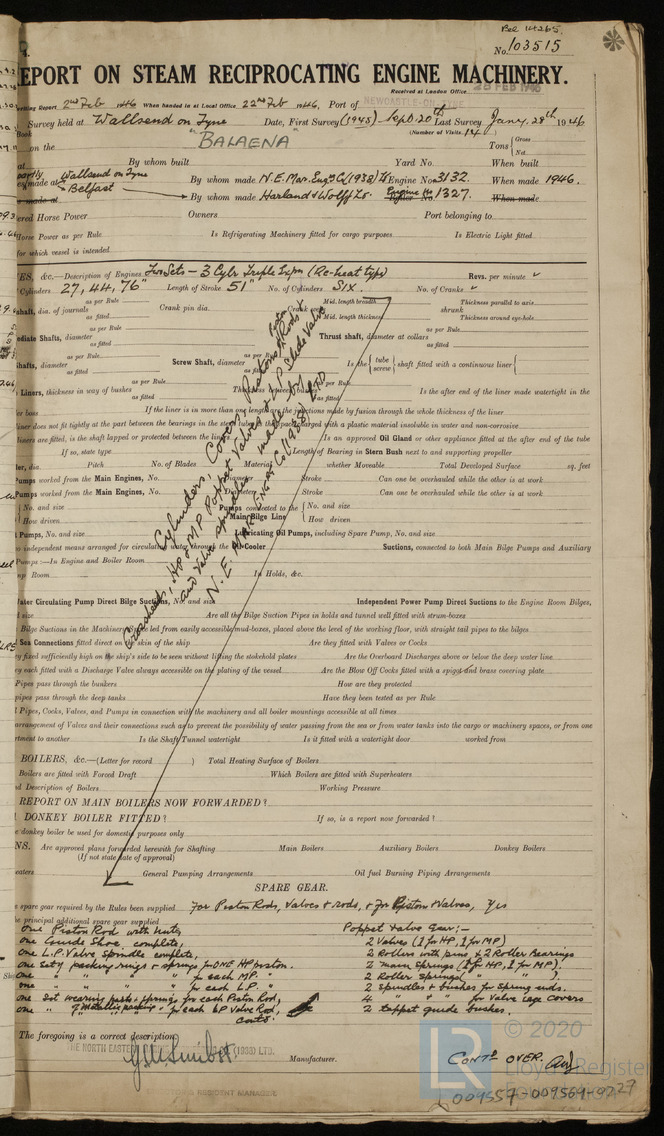 Bel 14265.
No. 103515
EPORT ON STEAM RECIPROCATING ENGINE MACHINERY.
Received at London Office 28 FEB 1946
Writing Report 2nd Feb 1946 When handed in at Local Office 22nd Feb 1946, Port of NEWCASTLE-ON-TYNE
Survey held at Wallsend on Tyne Date, First Survey (1945) - Sept. 20th Last Survey Jany. 28th 1946
Book (Number of Visits 14)
on the "BALAENA" Tons { Gross Net
at By whom built Yard No. When built
partly Wallsend on Tyne
made at By whom made N.E. Mar. Engrg Co (1938) Ld Engine No. 3132. When made 1946.
Belfast By whom made Harland & Wolff Ld. Engine No 1327. When made
ered Horse Power Owners Port belonging to
Horse Power as per Rule Is Refrigerating Machinery fitted for cargo purposes Is Electric Light fitted
for which vessel is intended
ES, &c.—Description of Engines Two Sets - 3 Cylr Triple Expn (Re-heat type) Revs. per minute
Cylinders 27, 44, 76" Length of Stroke 51" No. of Cylinders Six. No. of Cranks
shaft, dia. of journals as per Rule as fitted Crank pin dia. Mid. length breadth Mid. length thickness shrunk Thickness parallel to axis Thickness around eye-hole
ediate Shafts, diameter as per Rule as fitted Thrust shaft, diameter at collars as per Rule as fitted
hafts, diameter as per Rule as fitted Screw Shaft, diameter as per Rule as fitted Is the { tube screw } shaft fitted with a continuous liner {
Liners, thickness in way of bushes as per Rule as fitted as per Rule as fitted Is the after end of the liner made watertight in the
er boss If the liner is in more than one length are the junctions made by fusion through the whole thickness of the liner
liner does not fit tightly at the part between the bearings in the stern charged with a plastic material insoluble in water and non-corrosive
liners are fitted, is the shaft lapped or protected between the liners Is an approved Oil Gland or other appliance fitted at the after end of the tube
If so, state type Length of Bearing in Stern Bush next to and supporting propeller
ler, dia. Pitch No. of Blades Material whether Moveable Total Developed Surface sq. feet
umps worked from the Main Engines, No. Diameter Stroke Can one be overhauled while the other is at work
Pumps worked from the Main Engines, No. Diameter Stroke Can one be overhauled while the other is at work
{ No. and size Pumps connected to the { No. and size
{ How driven Main Bilge Line { How driven
Pumps, No. and size Lubricating Oil Pumps, including Spare Pump, No. and size
o independent means arranged for circulating water through the Oil Cooler Suctions, connected to both Main Bilge Pumps and Auxiliary
Pumps :—In Engine and Boiler Room
mp Room In Holds, &c.
Water Circulating Pump Direct Bilge Suctions, No. and size Independent Power Pump Direct Suctions to the Engine Room Bilges,
d size Are all the Bilge Suction Pipes in holds and tunnel well fitted with strum-boxes
Bilge Suctions in the Machinery led from easily accessible mud-boxes, placed above the level of the working floor, with straight tail pipes to the bilges
Sea Connections fitted direct on the skin of the ship Are they fitted with Valves or Cocks
y fixed sufficiently high on the ship's side to be seen without lifting the stokehold plates Are the Overboard Discharges above or below the deep water line
y each fitted with a Discharge Valve always accessible on the plating of the vessel Are the Blow Off Cocks fitted with a spigot and brass covering plate
Pipes pass through the bunkers How are they protected
pipes pass through the deep tanks Have they been tested as per Rule
l Pipes, Cocks, Valves, and Pumps in connection with the machinery and all boiler mountings accessible at all times
arrangement of Valves and their connections such as to prevent the possibility of water passing from the sea or from water tanks into the cargo or machinery spaces, or from one
rtment to another Is the Shaft Tunnel watertight Is it fitted with a watertight door worked from
Cylinders, Covers, Pistons & Piston Rods &
Crossheads, HP & MP Poppet Valves & LP Slide Valve
and Valve spindles made by
N.E. MAR. ENGRG Co (1938) LTD
BOILERS, &c.—(Letter for record ) Total Heating Surface of Boilers
Boilers are fitted with Forced Draft Which Boilers are fitted with Superheaters
nd Description of Boilers Working Pressure
REPORT ON MAIN BOILERS NOW FORWARDED ?
DONKEY BOILER FITTED ? If so, is a report now forwarded ?
e donkey boiler be used for domestic purposes only
NS. Are approved plans forwarded herewith for Shafting Main Boilers Auxiliary Boilers Donkey Boilers
(If not state date of approval)
eaters General Pumping Arrangements Oil fuel Burning Piping Arrangements
SPARE GEAR.
e spare gear required by the Rules been supplied For Piston Rods, Valves & rods, & for Piston Valves, Yes
he principal additional spare gear supplied
One Piston Rod with nuts, Poppet Valve Gear:-
one Guide Shoe, complete, 2 Valves (1 for HP, 1 for MP)
one L.P. Valve Spindle complete, 2 Rollers with pins & 2 Roller Bearings
one set packing rings & springs for ONE HP piston. 2 main Springs (1 for HP, 1 for MP).
one " " " " for each MP. " 2 Roller Springs ( " " ).
one " " " " for each L.P. " 2 spindles & bushes for spring ends.
one set wearing parts & springs for each Piston Rod, 4 " " " for Valve cage covers
one " " metallic packing " for each LP Valve Rod, 2 tappet guide bushes.
contd.
The foregoing is a correct description,
THE NORTH EASTERN (1938) LTD.
Manufacturer.
RESIDENT MANAGER
CONTD OVER.
© 2020
LR
Lloyd's Register
Foundation
009557-009564-0227